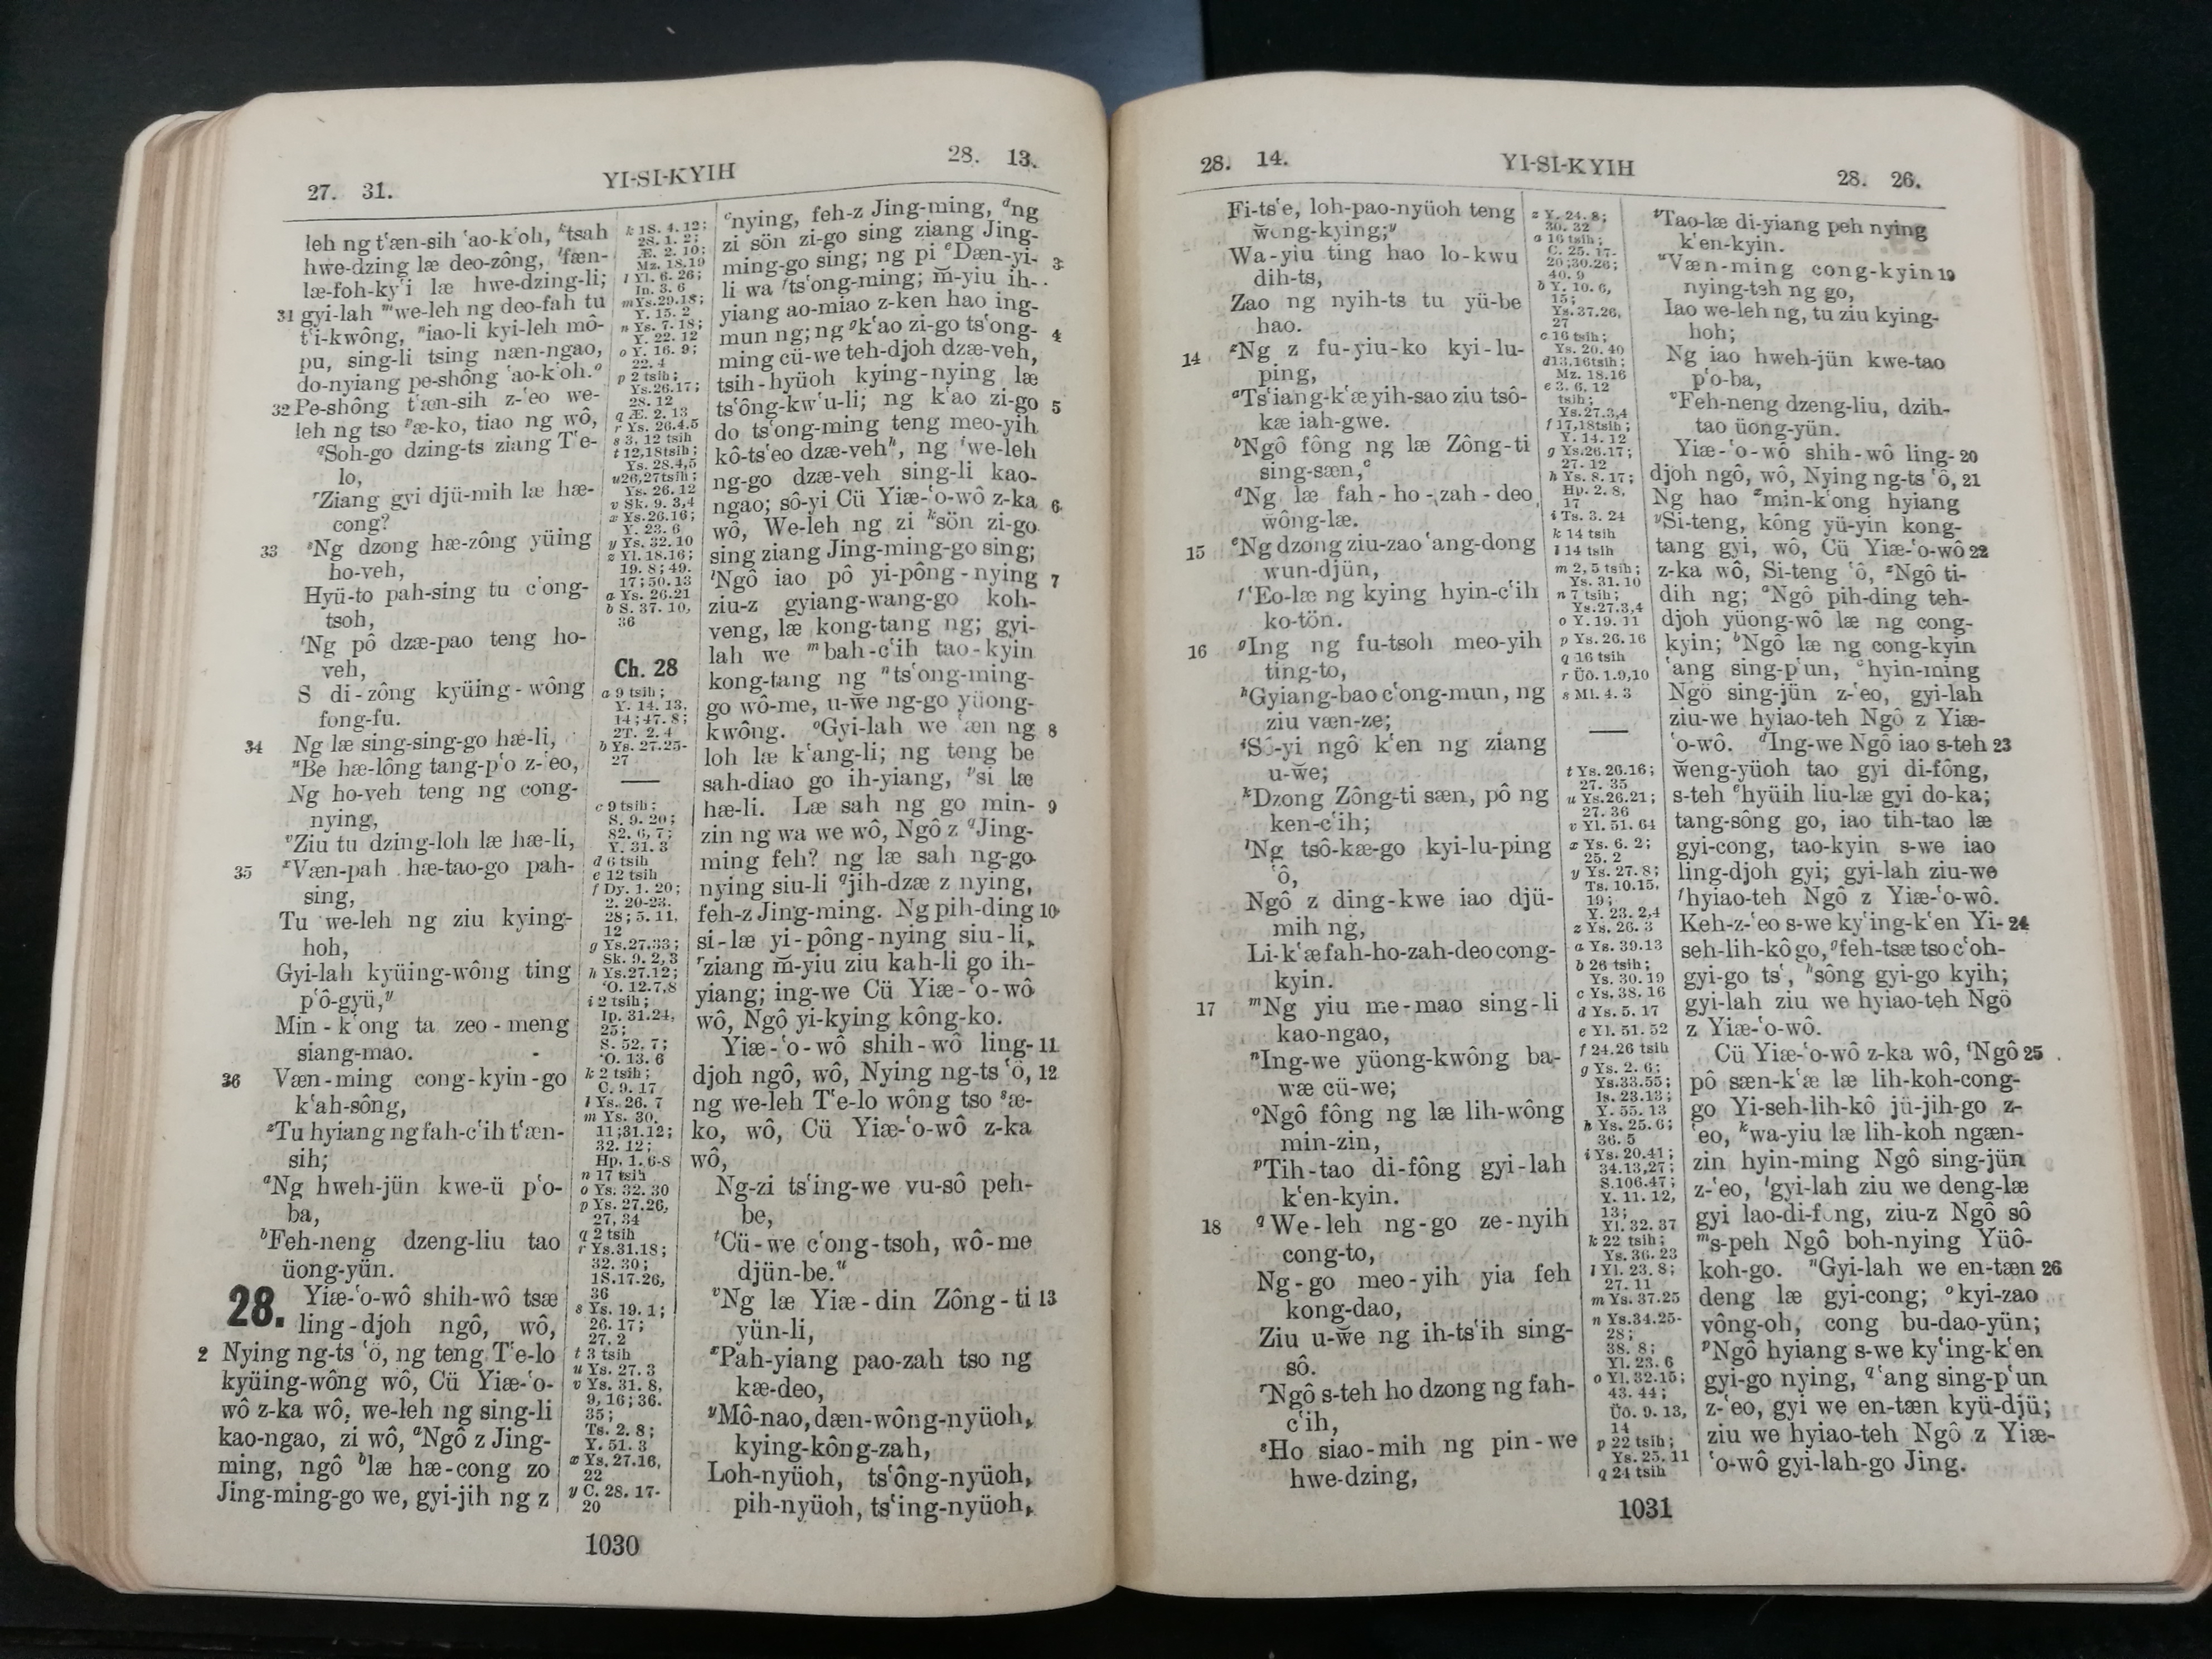 27. 31.
YI-SI-KYIH
28. 13.
leh ng t‘æn-sih ‘ao-k‘oh, ᵏtsah
hwe-dzing læ deo-zông, ˡfæn-
læ-foh-ky‘i læ hwe-dzing-li;
31 gyi-lah ᵐwe-leh ng deo-fah tu
t‘i-kwông, ⁿiao-li kyi-leh mô-
pu, sing-li tsing næn-ngao,
do-nyiang pe-shông ‘ao-k‘oh.ᵒ
32 Pe-shông t‘æn-sih z-‘eo we-
leh ng tso ᵖæ-ko, tiao ng wô,
ᑫSoh-go dzing-ts ziang T‘e-
lo,
ʳZiang gyi djü-mih læ hæ-
cong?
33 ˢNg dzong hæ-zông yüing
ho-veh,
Hyü-to pah-sing tu c‘ong-
tsoh,
ᵗNg pô dzæ-pao teng ho-
veh,
S di-zông kyüing-wông
fong-fu.
34 Ng læ sing-sing-go hæ-li,
ᵘBe hæ-lông tang-p‘o z-‘eo,
Ng ho-veh teng ng cong-
nying,
ᵛZiu tu dzing-loh læ hæ-li,
35 ˣVæn-pah hæ-tao-go pah-
sing,
Tu we-leh ng ziu kying-
hoh,
Gyi-lah kyüing-wông ting
p‘ô-gyü,ʸ
Min-k‘ong ta zeo-meng
siang-mao.
36 Væn-ming cong-kyin-go
k‘ah-sông,
ᶻTu hyiang ng fah-c‘ih t‘æn-
sih;
ᵃNg hweh-jün kwe-ü p‘o-
ba,
ᵇFeh-neng dzeng-liu tao
üong-yün.
28. Yiæ-‘o-wô shih-wô tsæ
ling-djoh ngô, wô,
2 Nying ng-ts ‘ô, ng teng T‘e-lo
kyüing-wông wô, Cü Yiæ-‘o-
wô z-ka wô, we-leh ng sing-li
kao-ngao, zi wô, ᵃNgô z Jing-
ming, ngô ᵇlæ hæ-cong zo
Jing-ming-go we, gyi-jih ng z
k 1S. 4. 12;
2S. 1. 2;
Æ. 2. 10;
Mz. 18.19
l Yl. 6. 26;
In. 3. 6
m Ys. 29.18;
Y. 15. 2
n Ys. 7. 18;
Y. 22. 12
o Y. 16. 9;
22. 4
p 2 tsih;
Ys.26.17;
28. 12
q Æ. 2. 13
r Ys. 26.4.5
s 3. 12 tsih
t 12,18tsih;
Ys. 28.4,5
u 26,27tsih;
Ys. 26. 12
v Sk. 9. 3,4
x Ys.26.16;
Y. 23. 6
y Ys. 32. 10
z Yl. 18.16;
19. 8; 49.
17; 50. 13
a Ys. 26.21
b S. 37. 10,
36
Ch. 28
a 9 tsih;
Y. 14. 13,
14; 47. 8;
2T. 2. 4
b Ys. 27.25-
27
c 9 tsih;
S. 9. 20;
82. 6, 7;
Y. 31. 3
d 6 tsih
e 12 tsih
f Dy. 1. 20;
2. 20-23.
28; 5. 11,
12
g Ys.27.33;
Sk. 9. 2,3
h Ys.27.12;
‘O. 12.7,8
i 2 tsih;
Ip. 31.24,
25;
S. 52. 7;
‘O. 13. 6
k 2 tsih;
C. 9. 17
l Ys. 26. 7
m Ys. 30.
11; 31.12;
32. 12;
Hp. 1. 6-8
n 17 tsih
o Ys. 32. 30
p Ys. 27.26,
27, 34
q 2 tsih
r Ys.31.18;
32. 30;
1S.17.26,
36
s Ys. 19. 1;
26. 17;
27. 2
t 3 tsih
u Ys. 27. 3
v Ys. 31. 8,
9, 16; 36.
35;
Ts. 2. 8;
Y. 51. 3
x Ys. 27.16,
22
y C. 28. 17-
20
ᶜnying, feh-z Jing-ming, ᵈng
zi sön zi-go sing ziang Jing-
ming-go sing; ng pi ᵉDæn-yi- 3
li wa ᶠts‘ong-ming; m̆-yiu ih-
yiang ao-miao z-ken hao ing-
mun ng; ng ᵍk‘ao zi-go ts‘ong- 4
ming cü-we teh-djoh dzæ-veh,
tsih-hyüoh kying-nying læ
ts‘ông-kw‘u-li; ng k‘ao zi-go 5
do ts‘ong-ming teng meo-yih
kô-ts‘eo dzæ-vehʰ, ng ⁱwe-leh
ng-go dzæ-veh sing-li kao-
ngao; sô-yi Cü Yiæ-‘o-wô z-ka 6
wô, We-leh ng zi ᵏsön zi-go
sing ziang Jing-ming-go sing;
ˡNgô iao pô yi-pông-nying 7
ziu-z gyiang-wang-go koh-
veng, læ kong-tang ng; gyi-
lah we ᵐbah-c‘ih tao-kyin
kong-tang ng ⁿts‘ong-ming-
go wô-me, u-w̆e ng-go yüong-
kwông. ᵒGyi-lah we ‘æn ng 8
loh læ k‘ang-li; ng teng be
sah-diao go ih-yiang, ᵖsi læ
hæ-li. Læ sah ng go min- 9
zin ng wa we wô, Ngô z ᑫJing-
ming feh? ng læ sah ng-go
nying siu-li ᑫjih-dzæ z nying,
feh-z Jing-ming. Ng pih-ding 10
si-læ yi-pông-nying siu-li,
ʳziang m̆-yiu ziu kah-li go ih-
yiang; ing-we Cü Yiæ-‘o-wô
wô, Ngô yi-kying kông-ko.
Yiæ-‘o-wô shih-wô ling- 11
djoh ngô, wô, Nying ng-ts ‘ô, 12
ng we-leh T‘e-lo wông tso ˢæ-
ko, wô, Cü Yiæ-‘o-wô z-ka
wô,
Ng-zi ts‘ing-we vu-sô peh-
be,
ᵗCü-we c‘ong-tsoh, wô-me
djün-be.ᵘ
ᵛNg læ Yiæ-din Zông-ti 13
yün-li,
ˣPah-yiang pao-zah tso ng
kæ-deo,
ʸMô-nao, dæn-wông-nyüoh,
kying-kông-zah,
Loh-nyüoh, ts‘ông-nyüoh,
pih-nyüoh, ts‘ing-nyüoh,
1030
28. 14.
YI-SI-KYIH
28. 26.
Fi-ts‘e, loh-pao-nyüoh teng
w̆ong-kying;ʸ
Wa-yiu ting hao lo-kwu
dih-ts,
Zao ng nyih-ts tu yü-be
hao.
14 ᶻNg z fu-yiu-ko kyi-lu-
ping,
ᵃTs‘iang-k‘æ yih-sao ziu tsô-
kæ iah-gwe.
ᵇNgô fông ng læ Zông-ti
sing-sæn,ᶜ
ᵈNg læ fah-ho-zah-deo
wông-læ.
15 ᵉNg dzong ziu-zao ‘ang-dong
wun-djün,
ᶠ‘Eo-læ ng kying hyin-c‘ih
ko-tön.
16 ᵍIng ng fu-tsoh meo-yih
ting-to,
ʰGyiang-bao c‘ong-mun, ng
ziu væn-ze;
ⁱSô-yi ngô k‘en ng ziang
u-w̆e;
ᵏDzong Zông-ti sæn, pô ng
ken-c‘ih;
ˡNg tsô-kæ-go kyi-lu-ping
‘ô,
Ngô z ding-kwe iao djü-
mih ng,
Li-k‘æ fah-ho-zah-deo cong-
kyin.
17 ᵐNg yiu me-mao sing-li
kao-ngao,
ⁿIng-we yüong-kwông ba-
wæ cü-we;
ᵒNgô fông ng læ lih-wông
min-zin,
ᵖTih-tao di-fông gyi-lah
k‘en-kyin.
18 ᑫWe-leh ng-go ze-nyih
cong-to,
Ng-go meo-yih yia feh
kong-dao,
Ziu u-w̆e ng ih-ts‘ih sing-
sô.
ʳNgô s-teh ho dzong ng fah-
c‘ih,
ˢHo siao-mih ng pin-we
hwe-dzing,
z Y. 24. 8;
30. 32
a 16 tsih;
C. 25. 17-
20; 30.26;
40. 9
b Y. 10. 6,
15;
Ys. 37.26,
27
c 16 tsih;
Ys. 20. 40
d 13,16tsih;
Mz. 18.16
e 3. 6. 12
tsih;
Ys. 27.3,4
f 17,18tsih;
Y. 14. 12
g Ys.26.17;
27. 12
h Ys. 8. 17;
Hp. 2. 8,
17
i Ts. 3. 24
k 14 tsih
l 14 tsih
m 2, 5 tsih;
Ys. 31. 10
n 7 tsih;
Ys.27.3,4
o Y. 19. 11
p Ys. 26. 16
q 16 tsih
r Üô. 1.9,10
s Ml. 4. 3
t Ys. 26.16;
27. 35
u Ys.26.21;
27. 36
v Yl. 51. 64
x Ys. 6. 2;
25. 2
y Ys. 27. 8;
Ts. 10.15,
19;
Y. 23. 2,4
z Ys. 26. 3
a Ys. 39. 13
b 26 tsih;
Ys. 30. 19
c Ys. 38. 16
d Ys. 5. 17
e Yl. 51. 52
f 24.26 tsih
g Ys. 2. 6;
Ys.33.55;
Is. 23.13;
Y. 55. 13
h Ys. 25. 6;
36. 5
i Ys. 20.41;
34.13,27;
S.106.47;
Y. 11. 12,
13;
Yl. 32. 37
k 22 tsih;
Ys. 36. 23
l Yl. 23. 8;
27. 11
m Ys. 37.25
n Ys.34.25-
28;
38. 8;
Yl. 23. 6
o Yl. 32.15;
43. 44;
Üô. 9. 13,
14
p 22 tsih;
Ys. 25. 11
q 24 tsih
ᵗTao-læ di-yiang peh nying
k‘en-kyin.
ᵘVæn-ming cong-kyin 19
nying-teh ng go,
Iao we-leh ng, tu ziu kying-
hoh;
Ng iao hweh-jün kwe-tao
p‘o-ba,
ᵛFeh-neng dzeng-liu, dzih-
tao üong-yün.
Yiæ-‘o-wô shih-wô ling- 20
djoh ngô, wô, Nying ng-ts ‘ô, 21
Ng hao ˣmin-k‘ong hyiang
ʸSi-teng, kông yü-yin kong-
tang gyi, wô, Cü Yiæ-‘o-wô 22
z-ka wô, Si-teng ‘ô, ᶻNgô ti-
dih ng; ᵃNgô pih-ding teh-
djoh yüong-wô læ ng cong-
kyin; ᵇNgô læ ng cong-kyin
‘ang sing-p‘un, ᶜhyin-ming
Ngô sing-jün z-‘eo, gyi-lah
ziu-we hyiao-teh Ngô z Yiæ-
‘o-wô. ᵈIng-we Ngô iao s-teh 23
w̆eng-yüoh tao gyi di-fông,
s-teh ᵉhyüih liu-læ gyi do-ka;
tang-sông go, iao tih-tao læ
gyi-cong, tao-kyin s-we iao
ling-djoh gyi; gyi-lah ziu-we
ᶠhyiao-teh Ngô z Yiæ-‘o-wô.
Keh-z-‘eo s-we ky‘ing-k‘en Yi- 24
seh-lih-kô go, ᵍfeh-tsæ tso c‘oh-
gyi-go ts‘, ʰsông gyi-go kyih;
gyi-lah ziu we hyiao-teh Ngô
z Yiæ-‘o-wô.
Cü Yiæ-‘o-wô z-ka wô, ⁱNgô 25
pô sæn-k‘æ læ lih-koh-cong-
go Yi-seh-lih-kô jü-jih-go z-
‘eo, ᵏwa-yiu læ lih-koh ngæn-
zin hyin-ming Ngô sing-jün
z-‘eo, ˡgyi-lah ziu we deng-læ
gyi lao-di-fông, ziu-z Ngô sô
ᵐs-peh Ngô boh-nying Yüô-
koh-go. ⁿGyi-lah we en-tæn 26
deng læ gyi-cong; ᵒkyi-zao
vông-oh, cong bu-dao-yün;
ᵖNgô hyiang s-we ky‘ing-k‘en
gyi-go nying, ᑫ‘ang sing-p‘un
z-‘eo, gyi we en-tæn kyü-djü;
ziu we hyiao-teh Ngô z Yiæ-
‘o-wô gyi-lah-go Jing.
1031